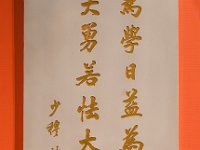 為學日益為
大勇若怯大
少穆